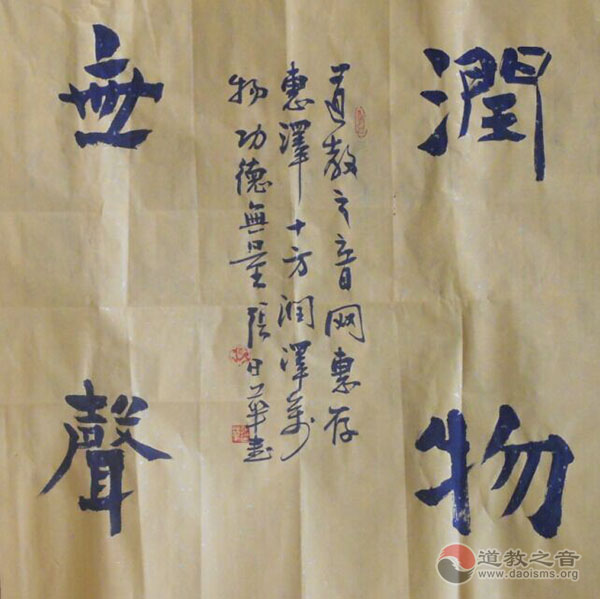 潤物
無聲
道教之音网惠存
惠澤十方潤澤萬
物功德無量張日華书
道教之音
www.daoisms.org